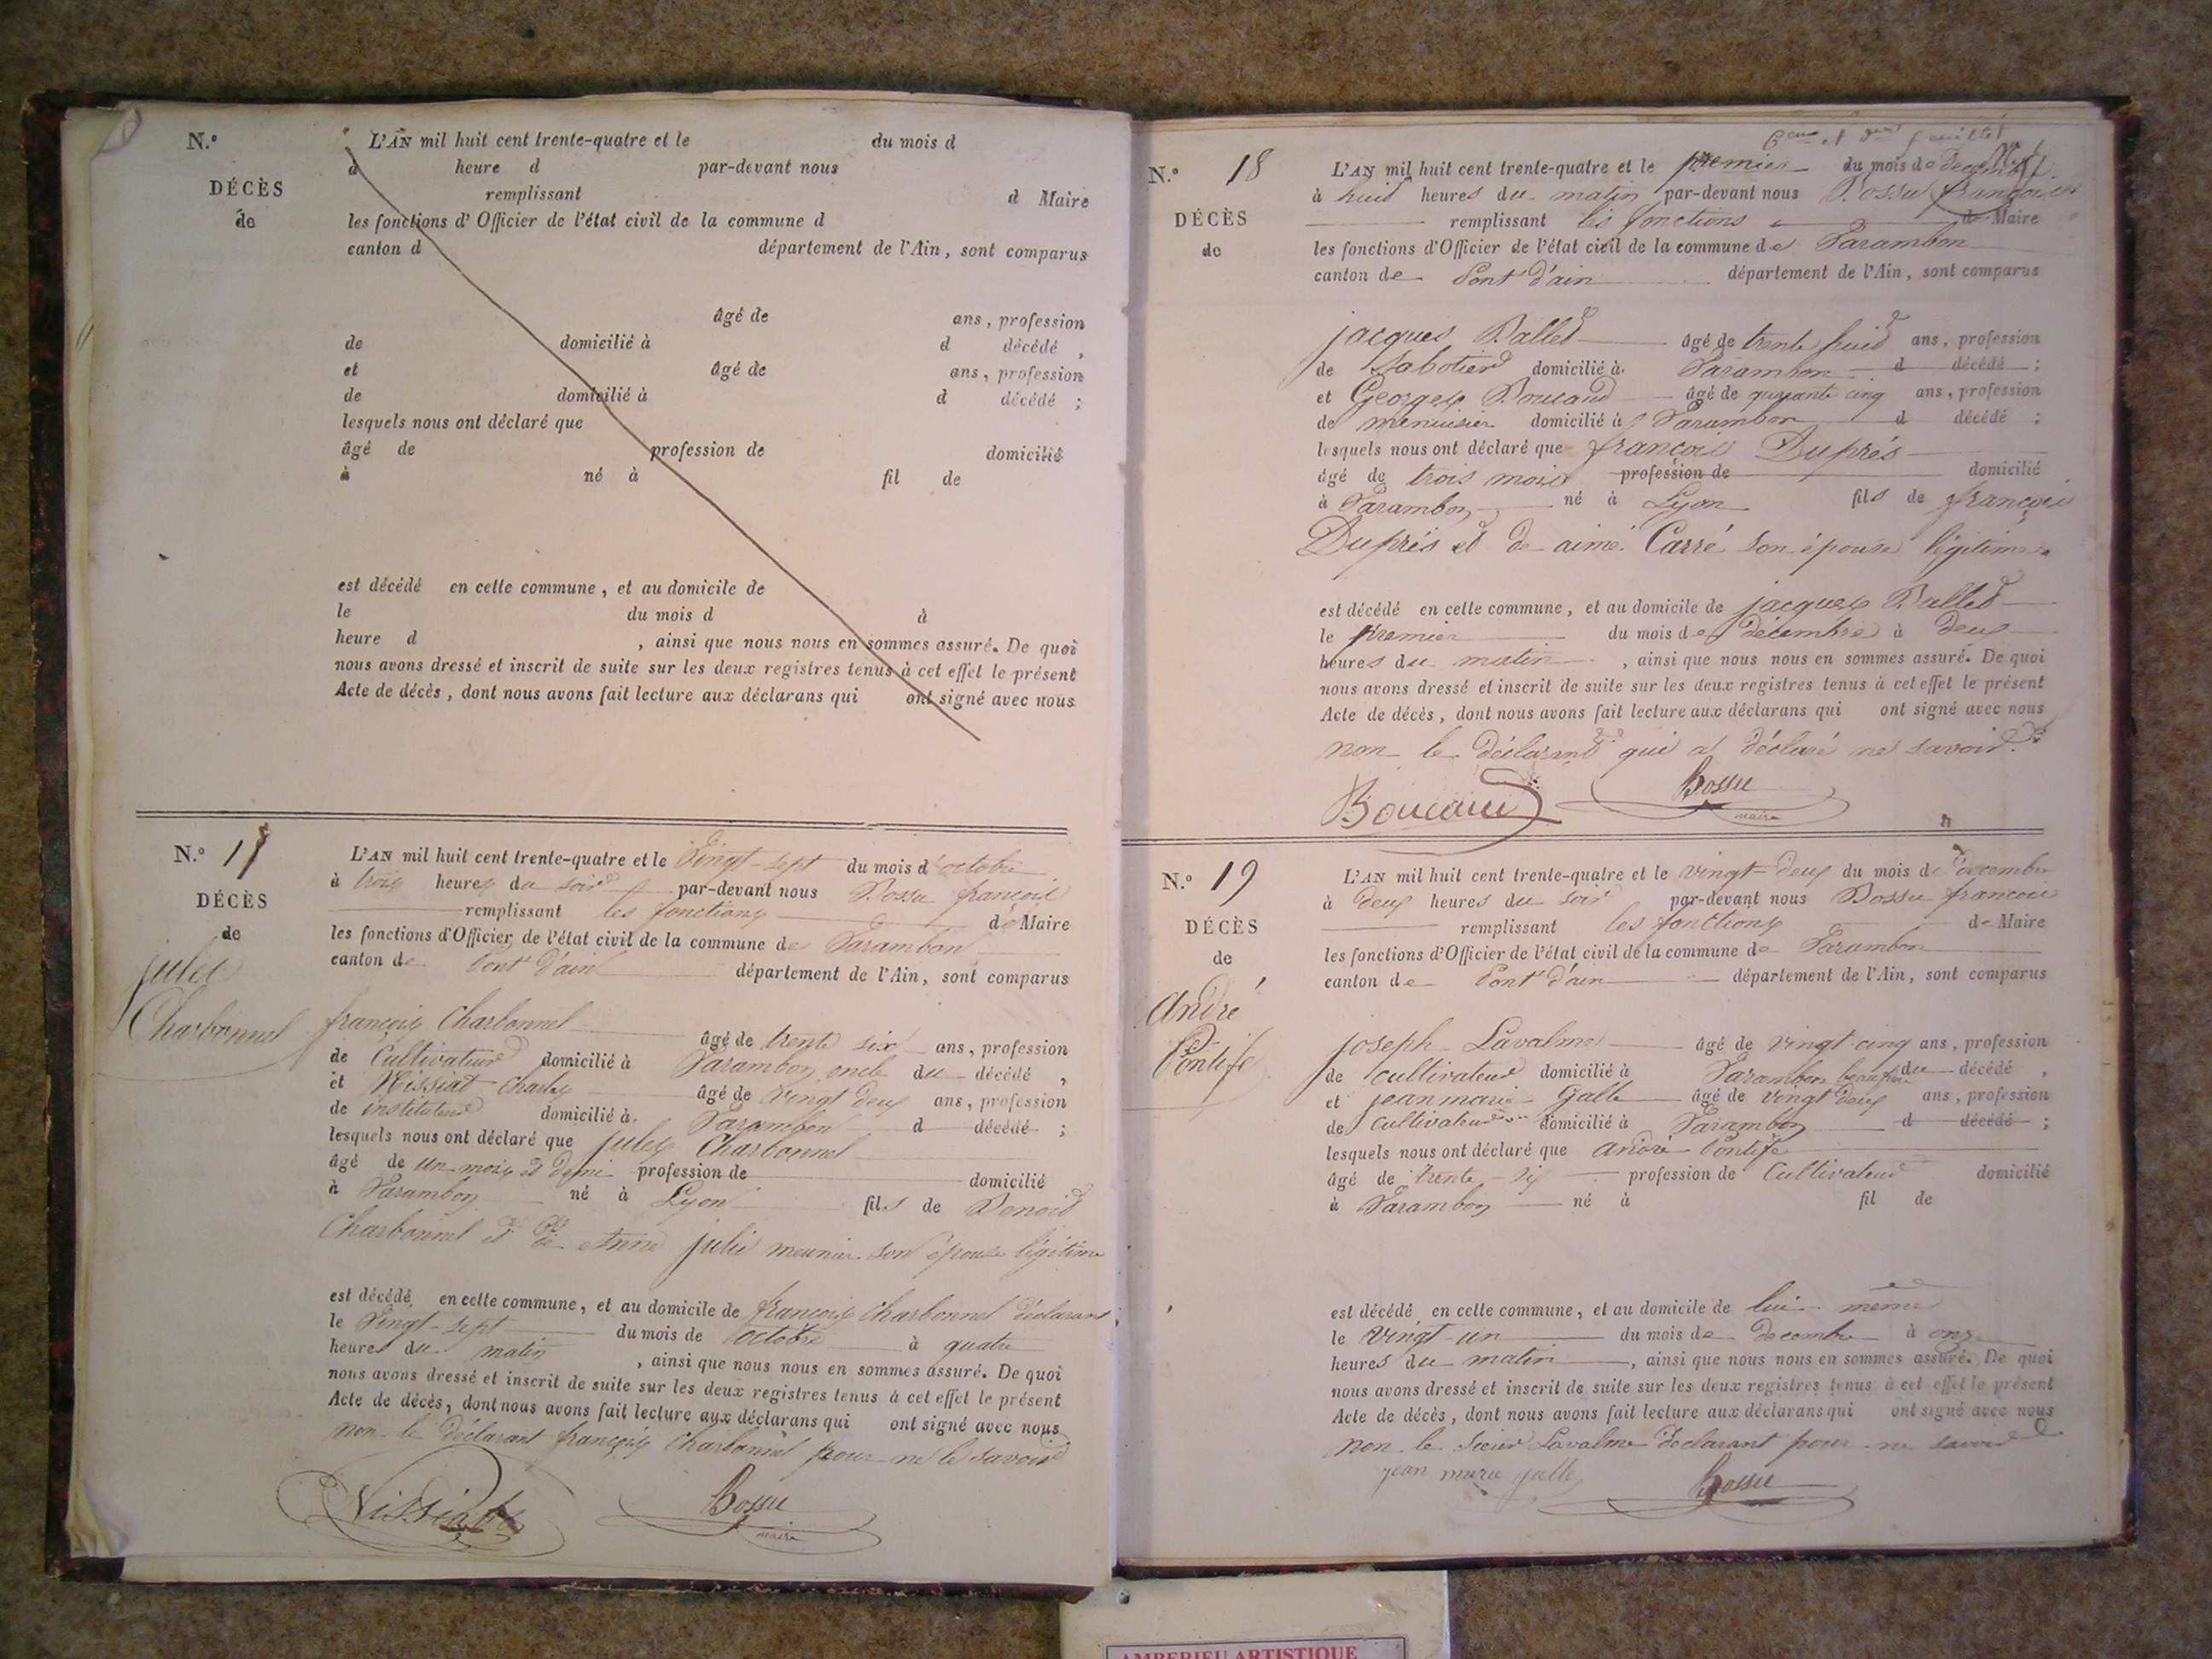 N.º
DÉCÈS
de
L'AN mil huit cent trente-quatre et le du mois d
à heure d par-devant nous
remplissant d Maire
les fonctions d'Officier de l'état civil de la commune d
canton d département de l'Ain, sont comparus
âgé de ans, profession
de domicilié à d décédé,
et âgé de ans, profession
de domicilié à d décédé;
lesquels nous ont déclaré que
âgé de profession de domicilié
à né à fil de
est décédé en cette commune, et au domicile de
le du mois d à
heure d , ainsi que nous nous en sommes assuré. De quoi
nous avons dressé et inscrit de suite sur les deux registres tenus à cet effet le présent
Acte de décès, dont nous avons fait lecture aux déclarans qui ont signé avec nous
N.º 17
DÉCÈS
de
jules
Charbonnel
L'AN mil huit cent trente-quatre et le Vingt-sept du mois d'octobre
à trois heures du soir par-devant nous Bossu françois
remplissant les fonctions de Maire
les fonctions d'Officier de l'état civil de la commune de Varambon
canton de Pont d'ain département de l'Ain, sont comparus
françois Charbonnel âgé de trente six ans, profession
de Cultivateur domicilié à Varambon oncle du décédé,
et Nissiat Charles âgé de vingt deux ans, profession
de instituteur domicilié à Varambon d décédé;
lesquels nous ont déclaré que jules Charbonnel
âgé de un mois et demi profession de domicilié
à Varambon né à Lyon fils de Benoit
Charbonnel et de Anne julie meunier son épouse légitime
est décédé en cette commune, et au domicile de françois Charbonnel déclarant
le Vingt-sept du mois de octobre à quatre
heures du matin , ainsi que nous nous en sommes assuré. De quoi
nous avons dressé et inscrit de suite sur les deux registres tenus à cet effet le présent
Acte de décès, dont nous avons fait lecture aux déclarans qui ont signé avec nous
non le déclarant françois Charbonnel pour ne le savoir
Bossu
maire
N.º 18
DÉCÈS
de
L'AN mil huit cent trente-quatre et le premier du mois de decembre
à huit heures du matin par-devant nous Bossu françois
remplissant les fonctions de Maire
les fonctions d'Officier de l'état civil de la commune de Varambon
canton de Pont d'ain département de l'Ain, sont comparus
jacques Ballet âgé de trente huit ans, profession
de Sabotier domicilié à Varambon d décédé;
et Georges Boucaud âgé de quarante cinq ans, profession
de menuisier domicilié à Varambon d décédé;
lesquels nous ont déclaré que françois Duprés
âgé de trois mois profession de domicilié
à Varambon né à Lyon fils de françois
Duprés et de aimé Carré son épouse légitime
est décédé en cette commune, et au domicile de jacques Ballet
le premier du mois de décembre à deux
heures du matin , ainsi que nous nous en sommes assuré. De quoi
nous avons dressé et inscrit de suite sur les deux registres tenus à cet effet le présent
Acte de décès, dont nous avons fait lecture aux déclarans qui ont signé avec nous
non le déclarant qui a déclaré ne savoir
Boucaud Bossu
maire
N.º 19
DÉCÈS
de
André
Pontife
L'AN mil huit cent trente-quatre et le vingt-deux du mois de decembre
à deux heures du soir par-devant nous Bossu francois
remplissant les fonctions de Maire
les fonctions d'Officier de l'état civil de la commune de Varambon
canton de Pont d'ain département de l'Ain, sont comparus
joseph Lavalme âgé de vingt cinq ans, profession
de cultivateur domicilié à Varambon beaufrère du décédé,
et jean marie Galle âgé de vingt deux ans, profession
de Cultivateur domicilié à Varambon d décédé;
lesquels nous ont déclaré que andré Pontife
âgé de trente-six profession de Cultivateur domicilié
à Varambon né à fil de
est décédé en cette commune, et au domicile de lui même
le vingt-un du mois de decembre à onze
heures du matin , ainsi que nous nous en sommes assuré. De quoi
nous avons dressé et inscrit de suite sur les deux registres tenus à cet effet le présent
Acte de décès, dont nous avons fait lecture aux déclarans qui ont signé avec nous
non le sieur Lavalme declarant pour ne savoir
jean marie galle Bossu
AMBERIEU ARTISTIQUE